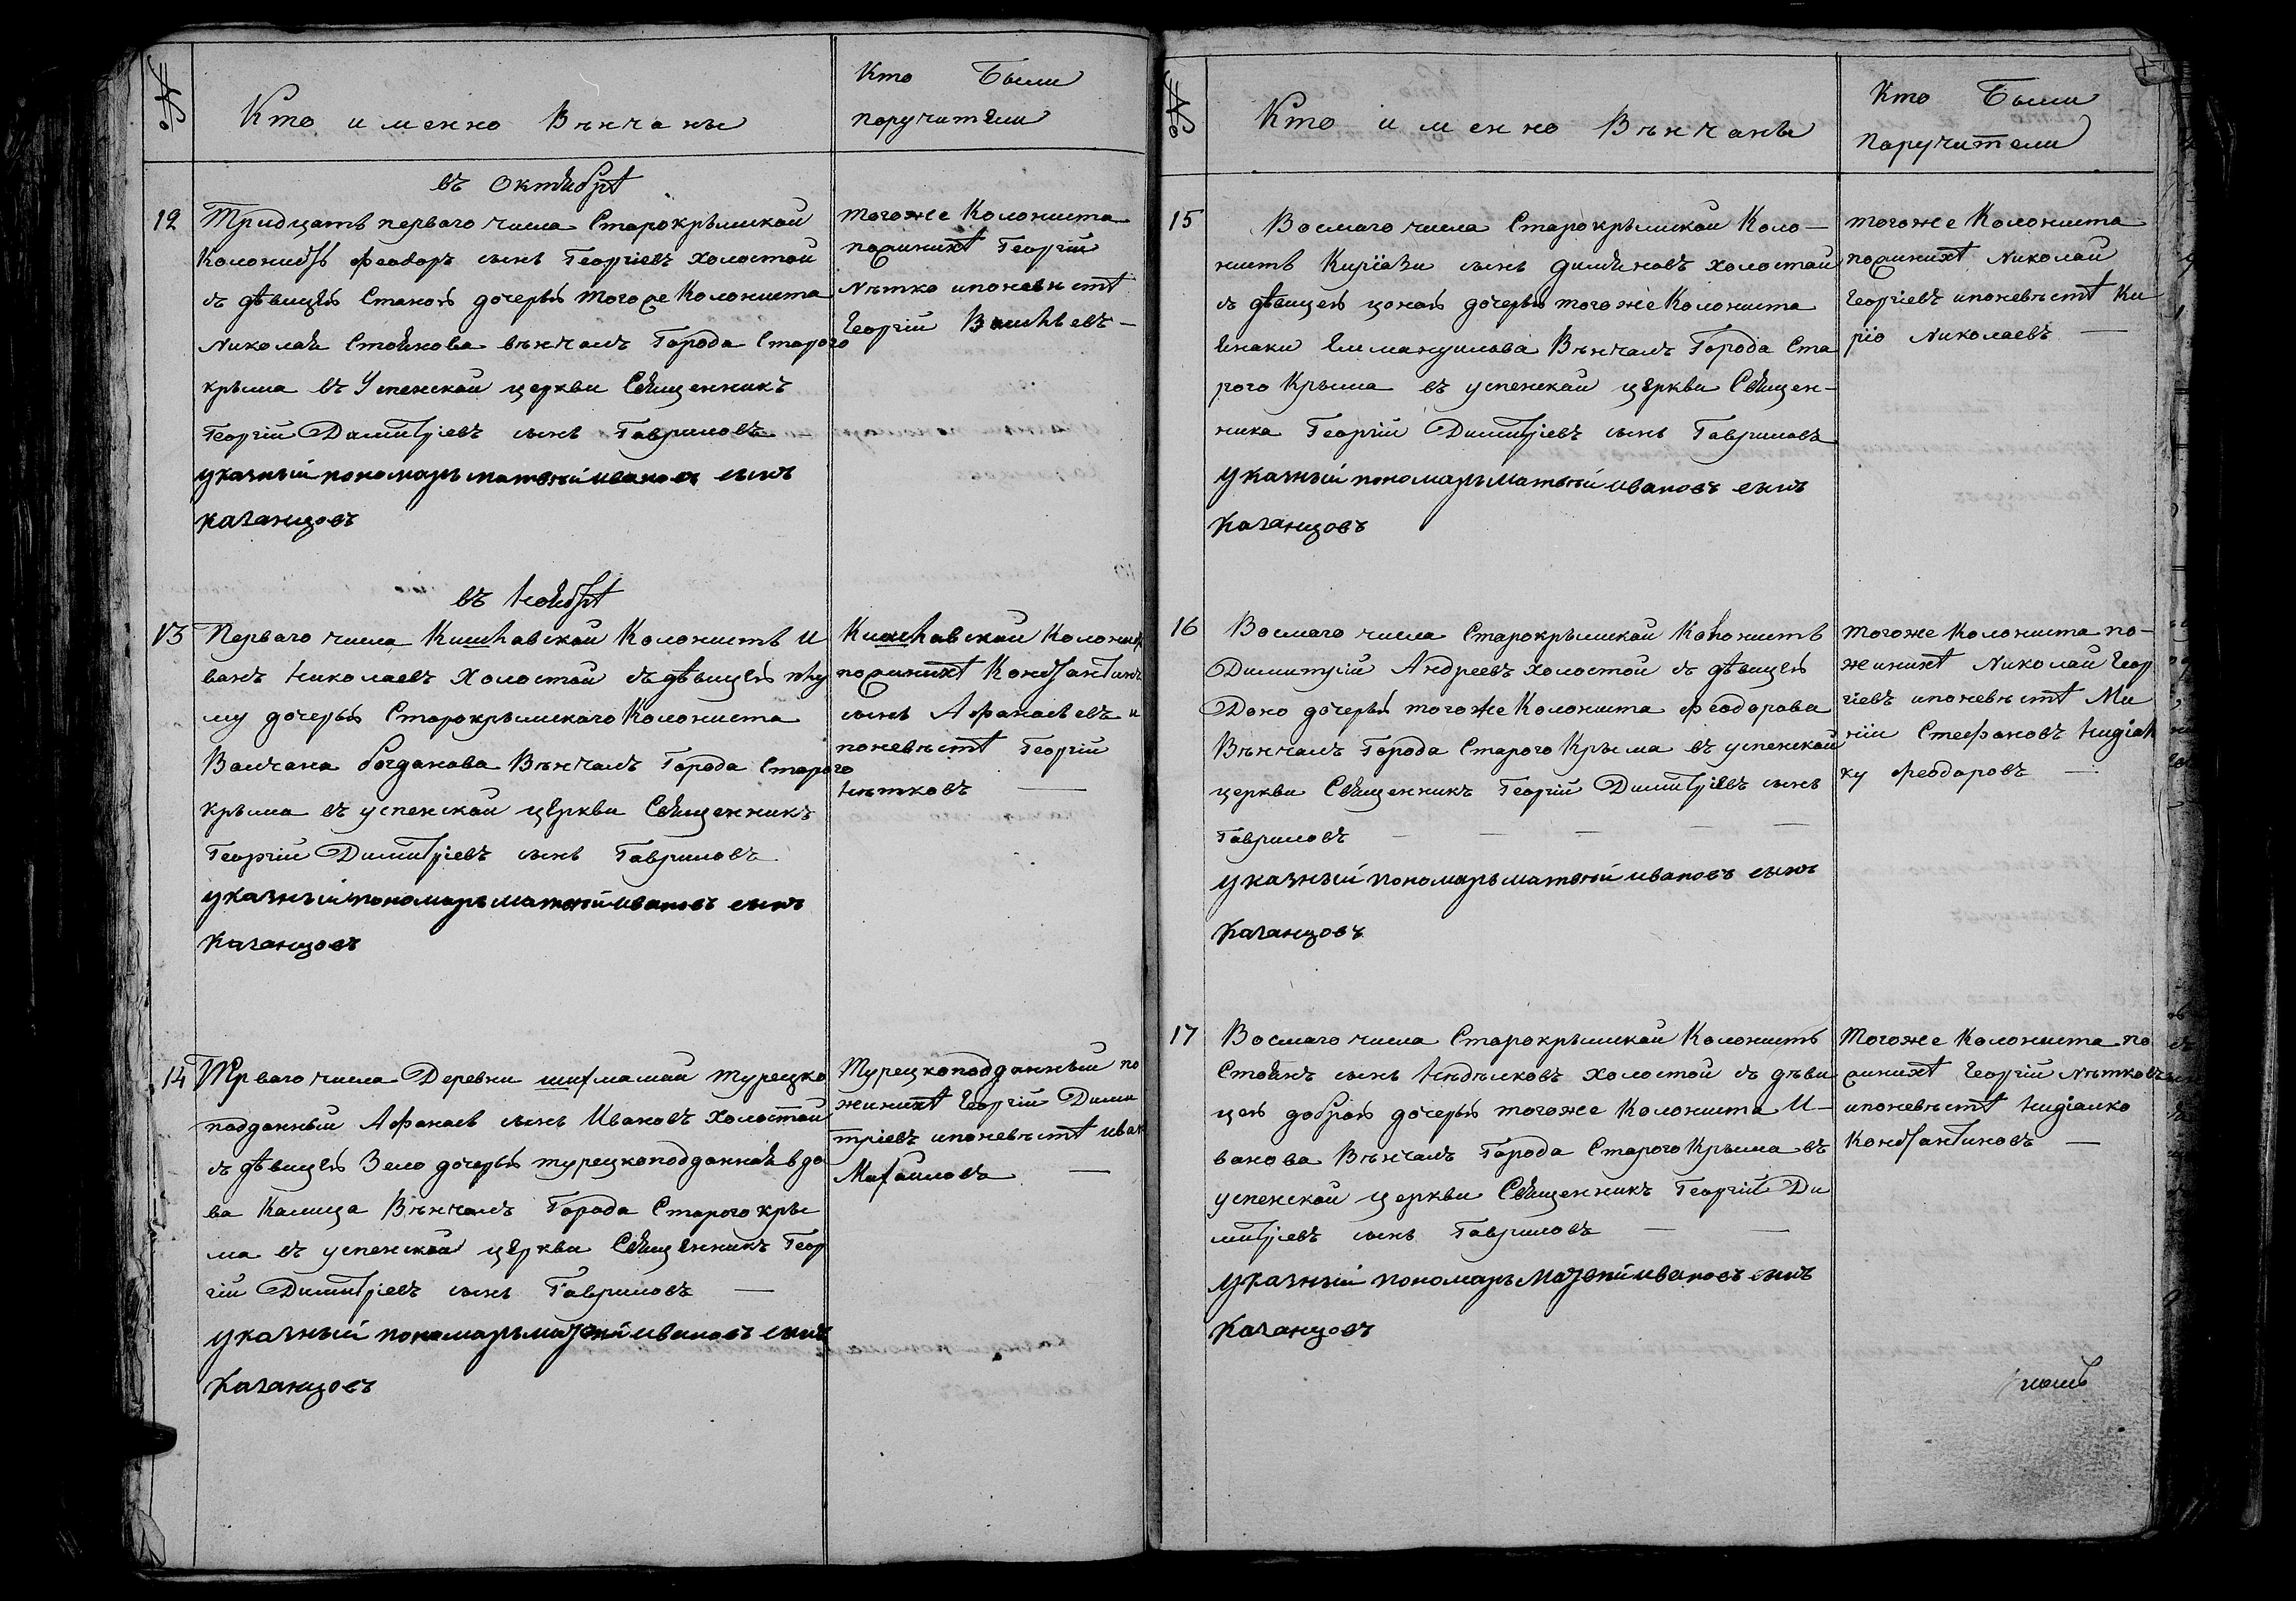 №
Кто именно Вѣнчаны
Кто Были
поручители
въ Октябрѣ
12
Тридцать перваго числа Старокрымской
Колонистъ Феодоръ сынъ Георгіевъ холостой
съ дѣвицей Станой дочерью тогоже Колониста
Николая Стоянова вѣнчалъ Города Старого
крыма въ Успенской церкви Священникъ
Георгій Димитріевъ сынъ Гавриловъ
указный пономарь матвѣй ивановъ сынъ
казанцовъ
тогоже Колониста
пожинихѣ Георгій
Нѣтко ипоневѣстѣ
Георгій
въ Ноябрѣ
13
Перваго числа Кишлавской Колонистъ И
ванъ Николаевъ Холостой съ дѣвицей
му дочерью Старокрымскаго Колониста
Волчана богданова Вѣнчалъ Города Старого
крыма въ успенской церкви Священникъ
Георгій Димитріевъ сынъ Гавриловъ
указный пономарь матвѣй ивановъ сынъ
казанцовъ
Кишлавской
пожинихѣ Константинъ
сынъ Афанасьевъ и
поневѣстѣ Георгій
Нѣтковъ
14
Перваго числа Деревни шихмамай турецко
подданный Афанас сынъ Ивановъ Холостой
съ дѣвицей Зело дочерью турецкоподданная вдо
ва Калица Вѣнчалъ Города Старого кры
ма въ успенской церкви Священникъ Геор
гій Димитріевъ сынъ Гавриловъ
указный пономарь матвѣй ивановъ сынъ
казанцовъ
Турецкоподданный по
жинихѣ Георгій Дими
тріевъ ипоневѣстѣ иван
Михаиловъ
№
Кто именно Вѣнчаны
Кто Были
Поручители
15
Восмаго числа Старокрымской Коло-
нистъ Киріази сынъ холостой
съ дѣвицей цоной дочерью тогоже Колониста
Янаки Еммануилова Вѣнчалъ Города Ста
рого Крыма въ успенской церкви Священ-
ника Георгій Димитріевъ сынъ Гавриловъ
Указный пономарь Матвѣй ивановъ сынъ
Казанцовъ
тогоже Колониста
пожинихѣ Николай
Георгіевъ ипоневѣстѣ Ки
ріо Николаевъ
16
Восмаго числа Старокрымской Колонистъ
Димитрій Андреевъ холостой съ дѣвицей
Доно дочерью тогоже Колониста Феодорова
Вѣнчалъ Города Старого Крыма въ успенской
церкви Священникъ Георгій Димитріевъ сынъ
Гавриловъ
указный пономарь матвѣй ивановъ сынъ
Казанцовъ
тогоже Колониста по-
жинихѣ Николай Геор
гіевъ ипоневѣстѣ Ми
Стефановъ
ку Феодоровъ
17
Восмаго числа Старокрымской Колонистъ
Стоянъ сынъ Недѣлковъ холостой съ дѣви
цей доброй дочерью тогоже Колониста И-
ванова Вѣнчалъ Города Старого Крыма въ
успенской церкви Священникъ Георгій Ди
митріевъ сынъ Гавриловъ
Указный пономарь Матвѣй ивановъ сынъ
Казанцовъ
Тогоже Колониста по
жинихѣ Георгій Нѣтковъ
ипоневѣстѣ Нидіалко
Константиновъ